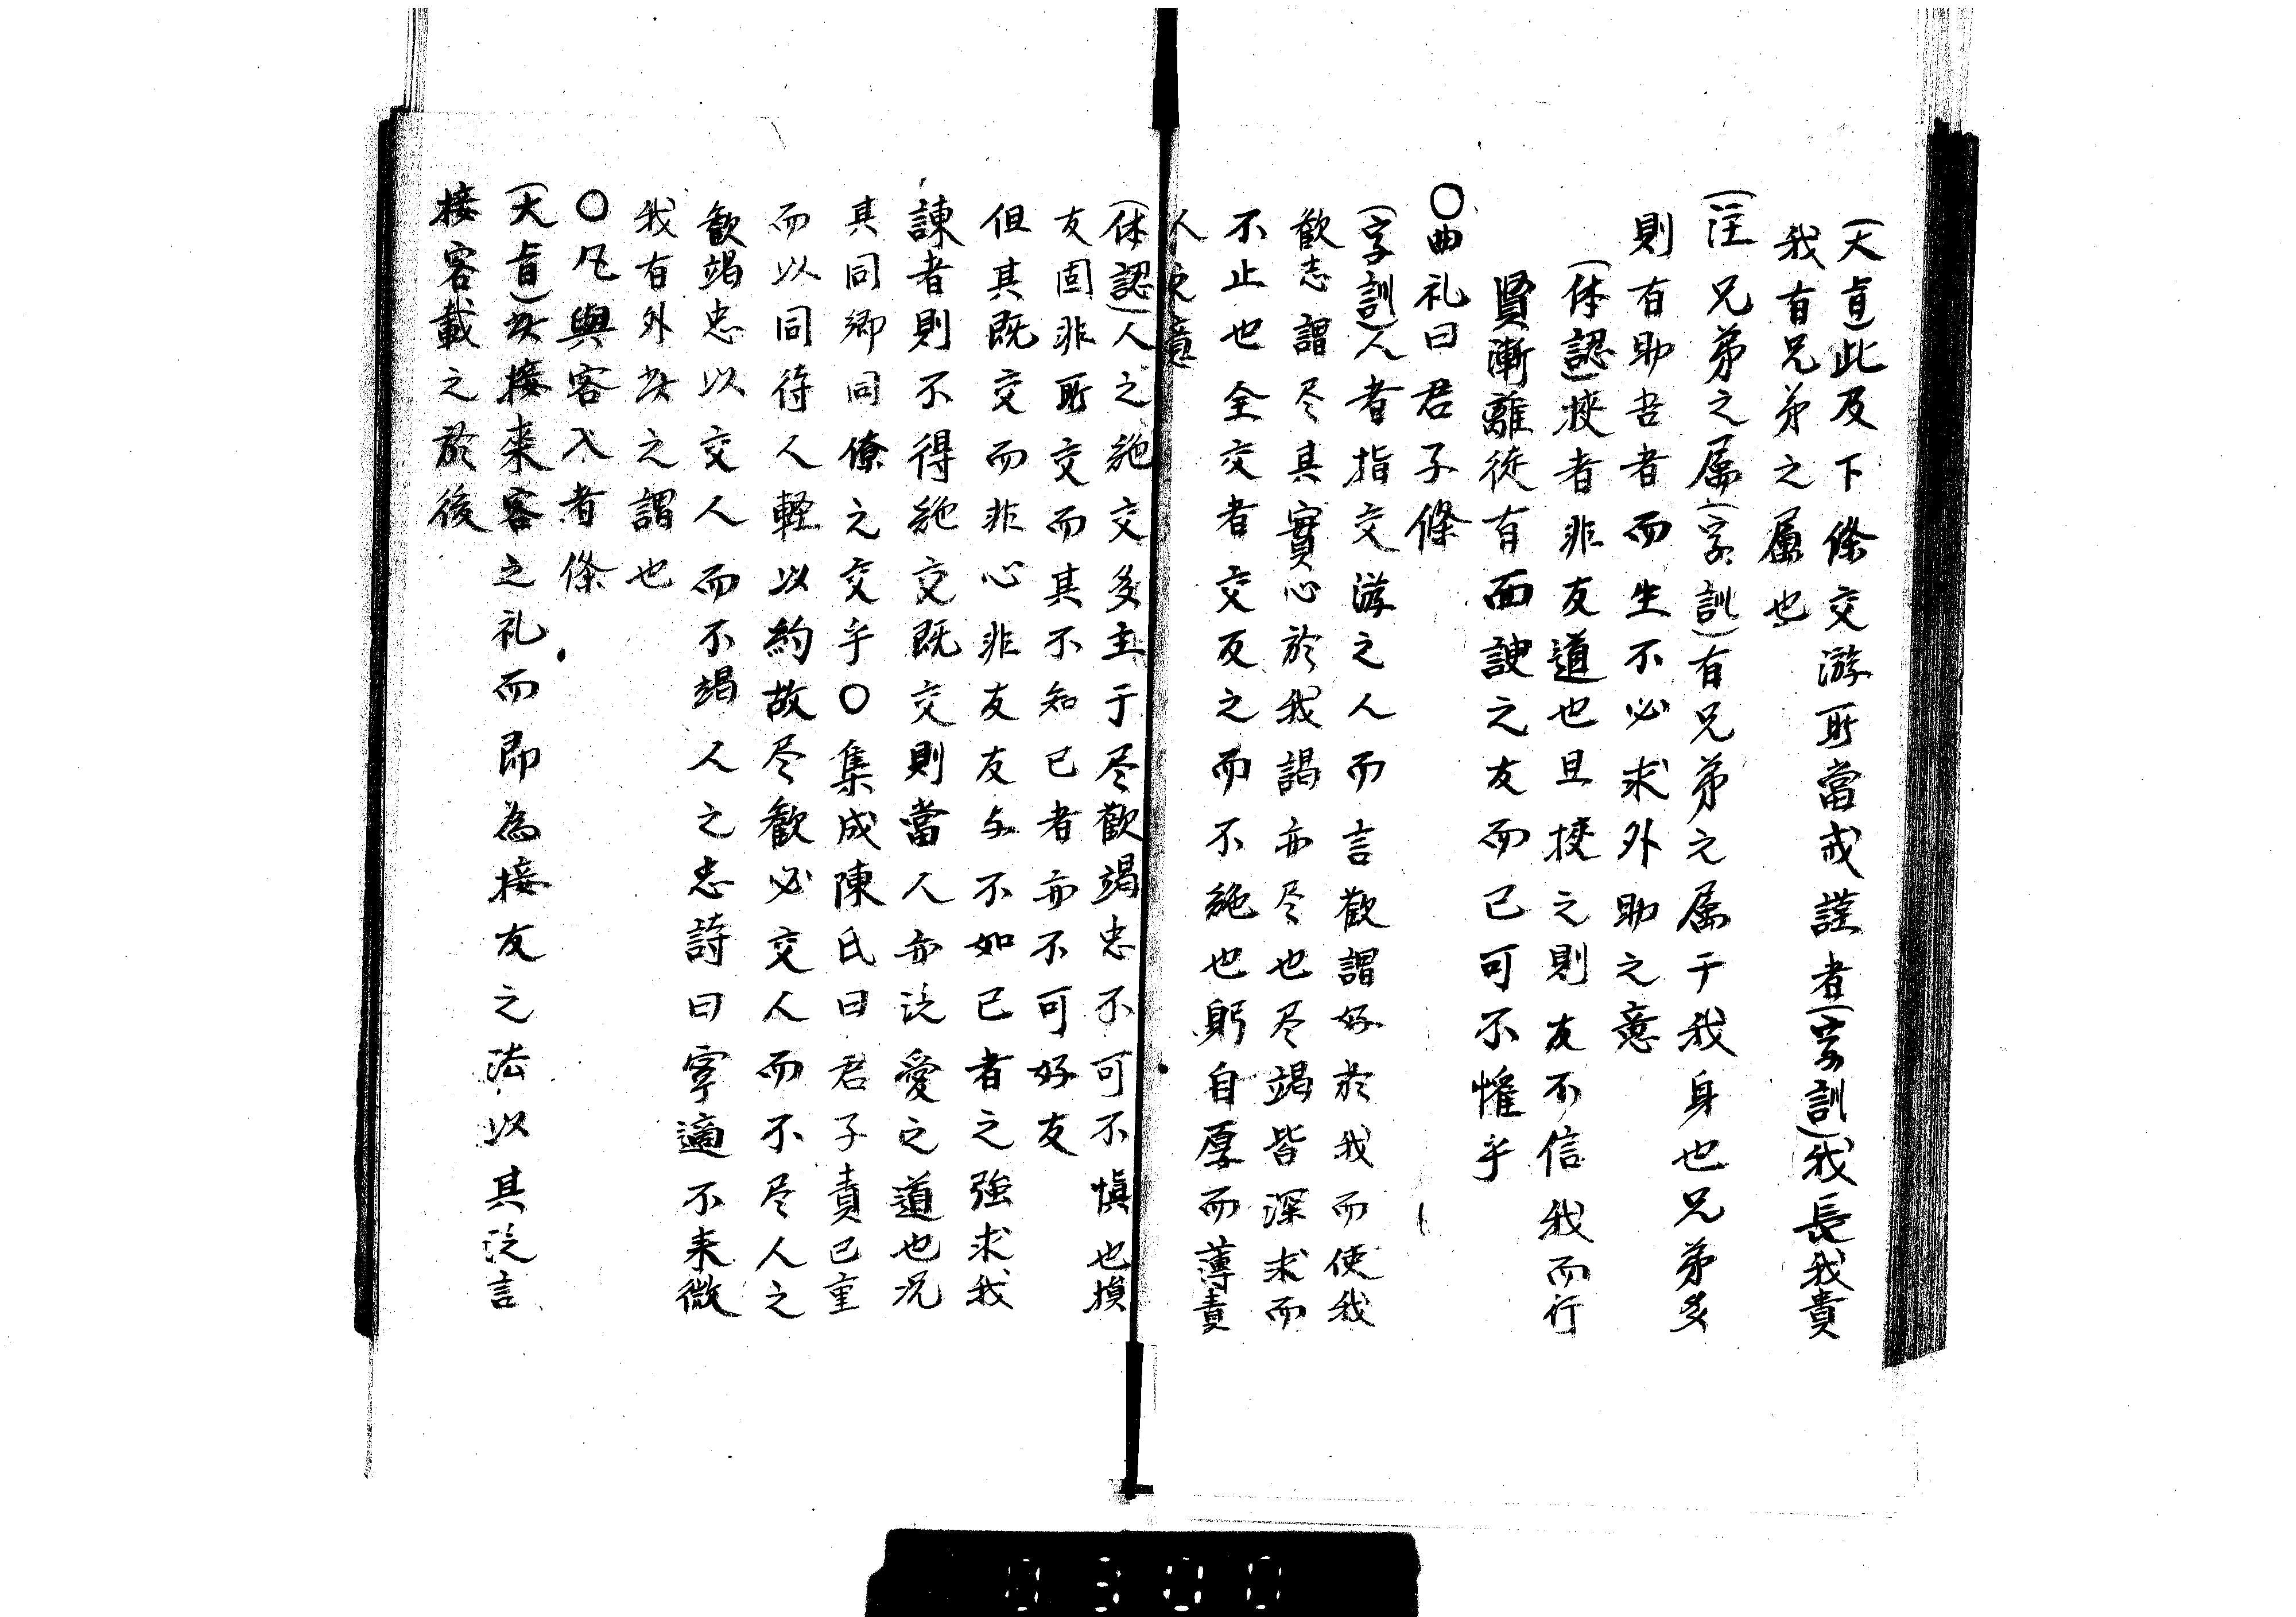 (大旨)此及下條交游所當戒謹者(字訓)我長我貴
我有兄弟之属也
(注)兄弟之属(字訓)有兄弟之属于我身也兄弟多
則有助吾者而生不必求外助之意
(体認)挾者非友道也且挾之則友不信我而行
賢漸離徒有面諛之友而已可不懼乎
〇曲礼曰君子條
(字訓)人者指交游之人而言歡謂好於我而使我
歡志謂尽其實心於我謁亦尽也尽竭皆深求而
不止也全交者交友之而不絶也躬自厚而薄責
人之意
(体認)人之絶交多主于尽歡竭忠不可不慎也損
友固非所交而其不知已者亦不可好友
但其既交而非心非友友与不如已者之強求我
諫者則不得絶交既交則當人亦泛愛之道也况
其同郷同僚之交乎〇集成陳氏曰君子責已重
而以同待人軽以約故尽歡必交人而不尽人之
歡竭忠以交人而不竭人之忠詩曰寧適不来微
我有外此之謂也
〇凡與客入者條
(大旨)此接来客之礼而即為接友之法以其泛言
接客載之於後
0300